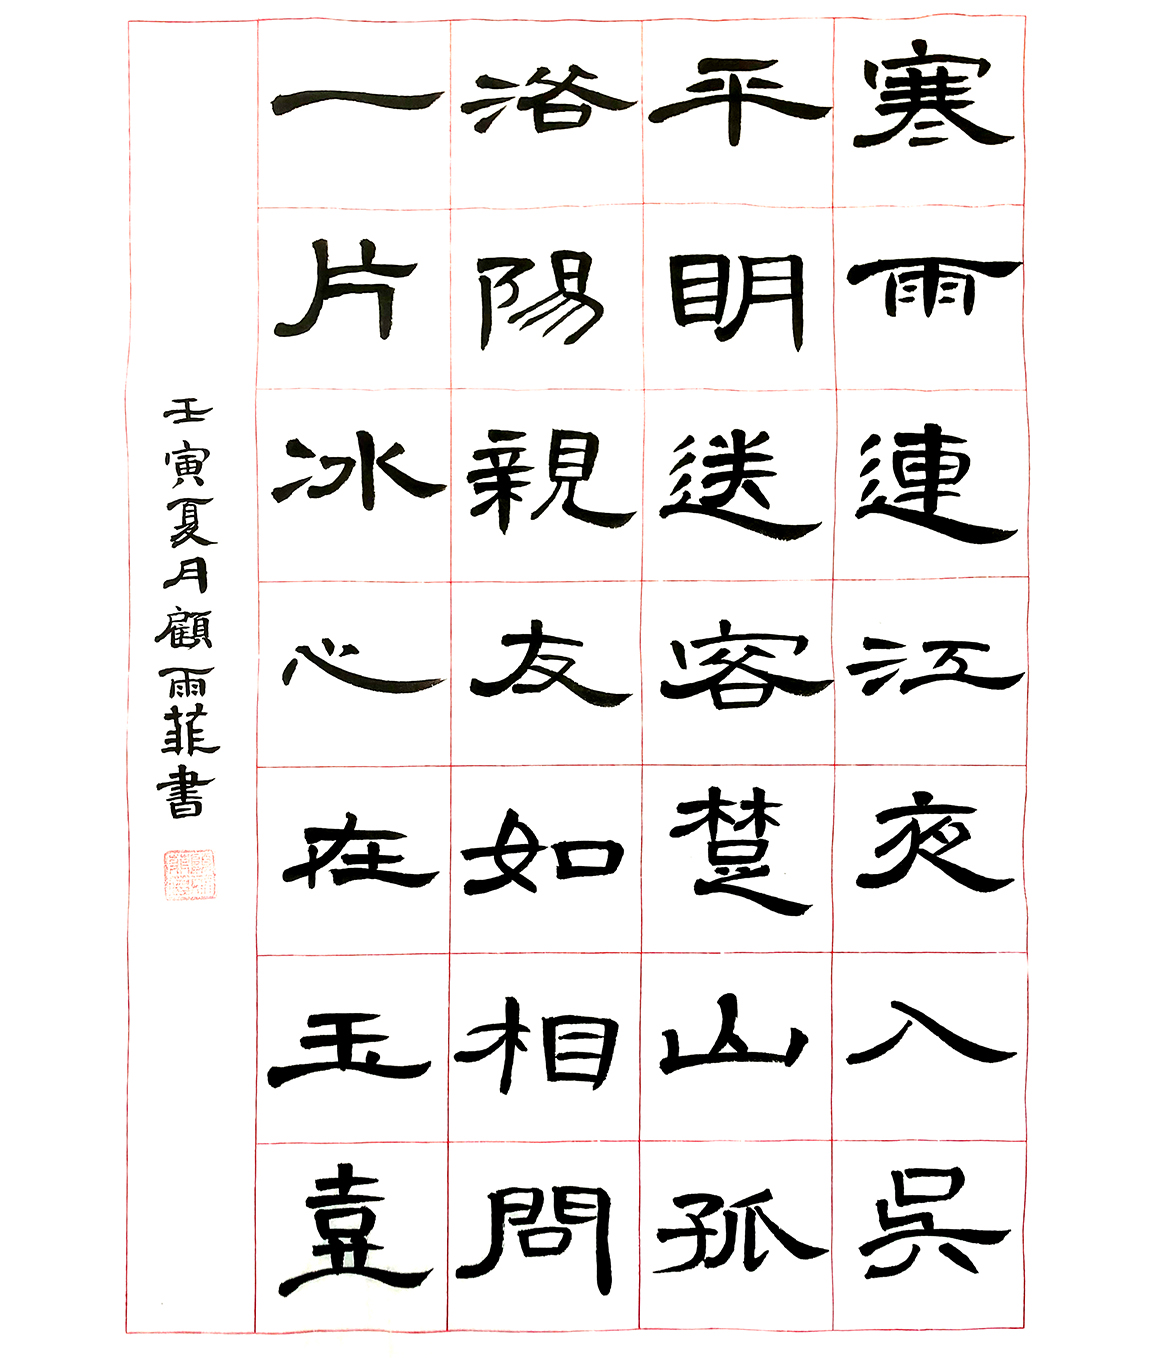 寒雨連江夜入吳
平明送客楚山孤
洛陽親友如相問
一片冰心在玉壺
壬寅夏月顧雨菲書